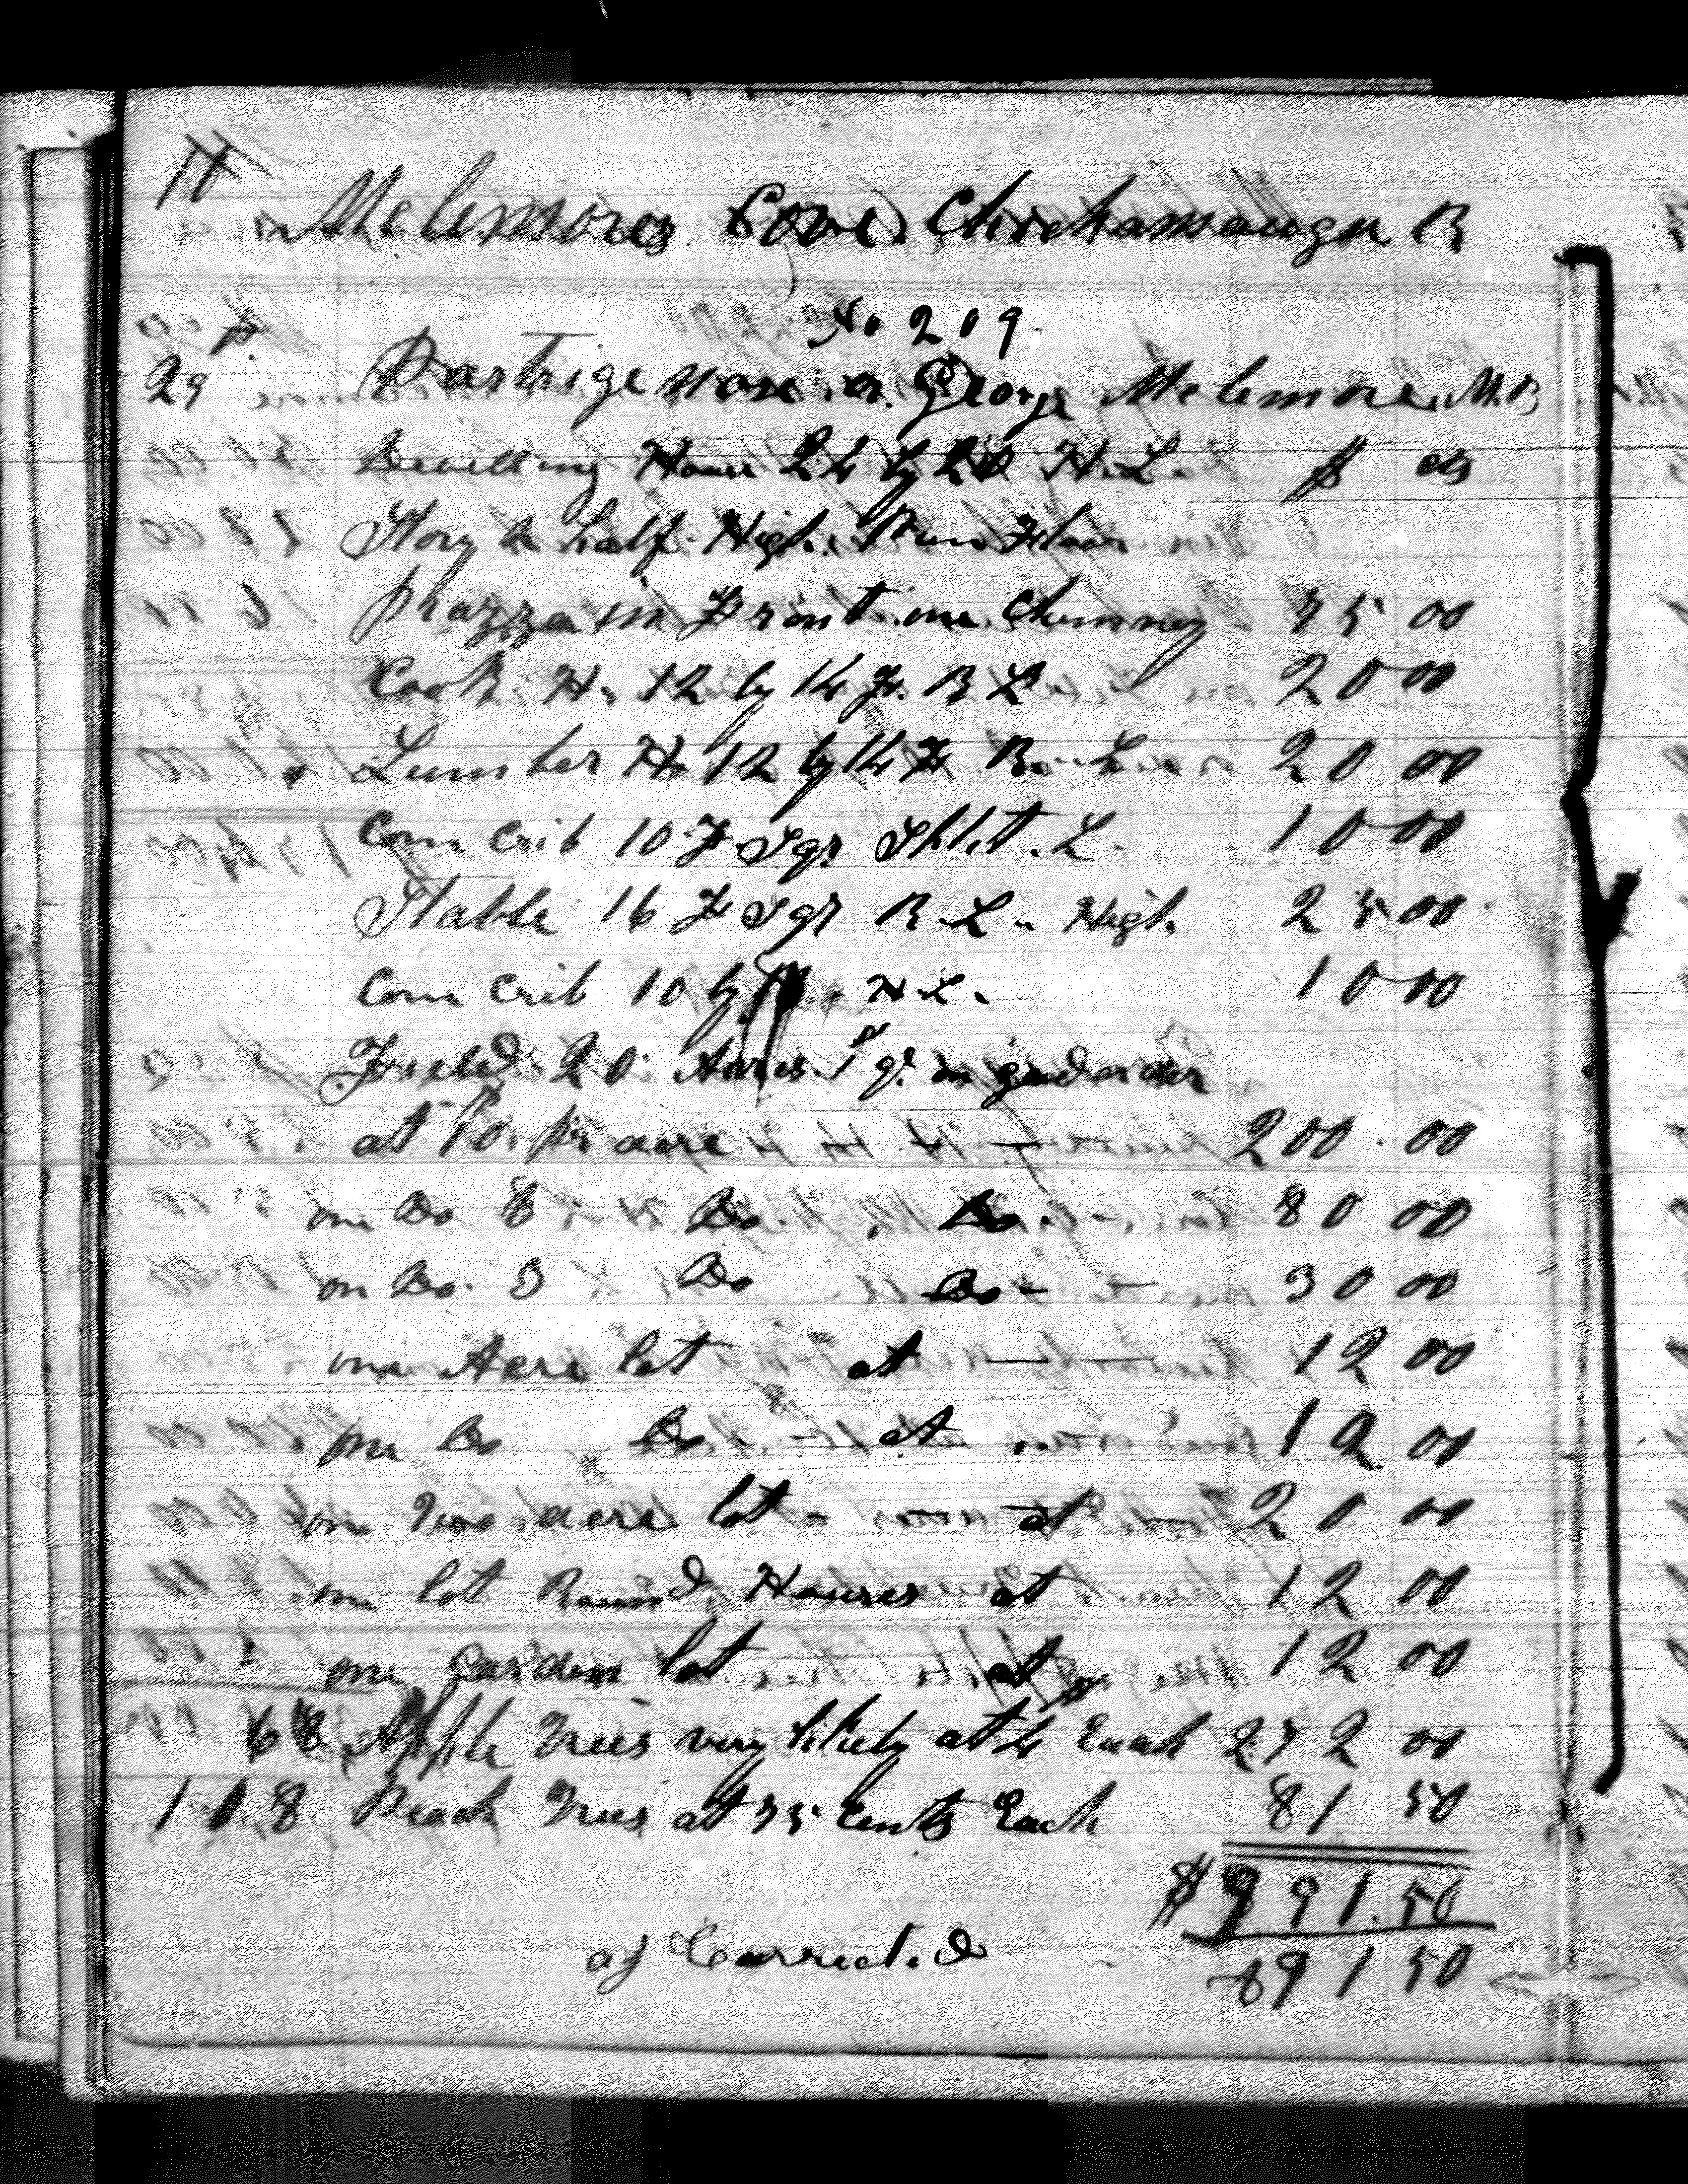 Melemores Cove Chickamauga R
No 209
29th Partrige now or George Melemore M.B
Dwelling House 24 by 20 H.L. $ cts
Story & half High. Pun Floor
Piazza in Front one Chimney 75 00
Cook H. 12 by 14 F. R L 20 00
Lumber H. 12 by 14 F R. L 20 00
Corn Crib 10 F Sqr Split. L. 10 00
Stable 16 F Sqr R. L. High 25 00
Corn Crib 10 by H.L. 10 00
Field 20 Acres 1st ql. in good order
at 10 pr acre 200.00
one Do 8 Do. Do. 80 00
on Do. 3 Do Do - 30 00
one Acre lot at 12 00
one Do Do - at 12 00
one Two acre lot - at 20 00
one lot Round Houses at 12 00
one garden lot at 12 00
68 Apple Trees very likely at 4 Each 272 00
108 Peach Trees at 75 Cents Each 81.50
$ 991.50
as Corrected 891 50